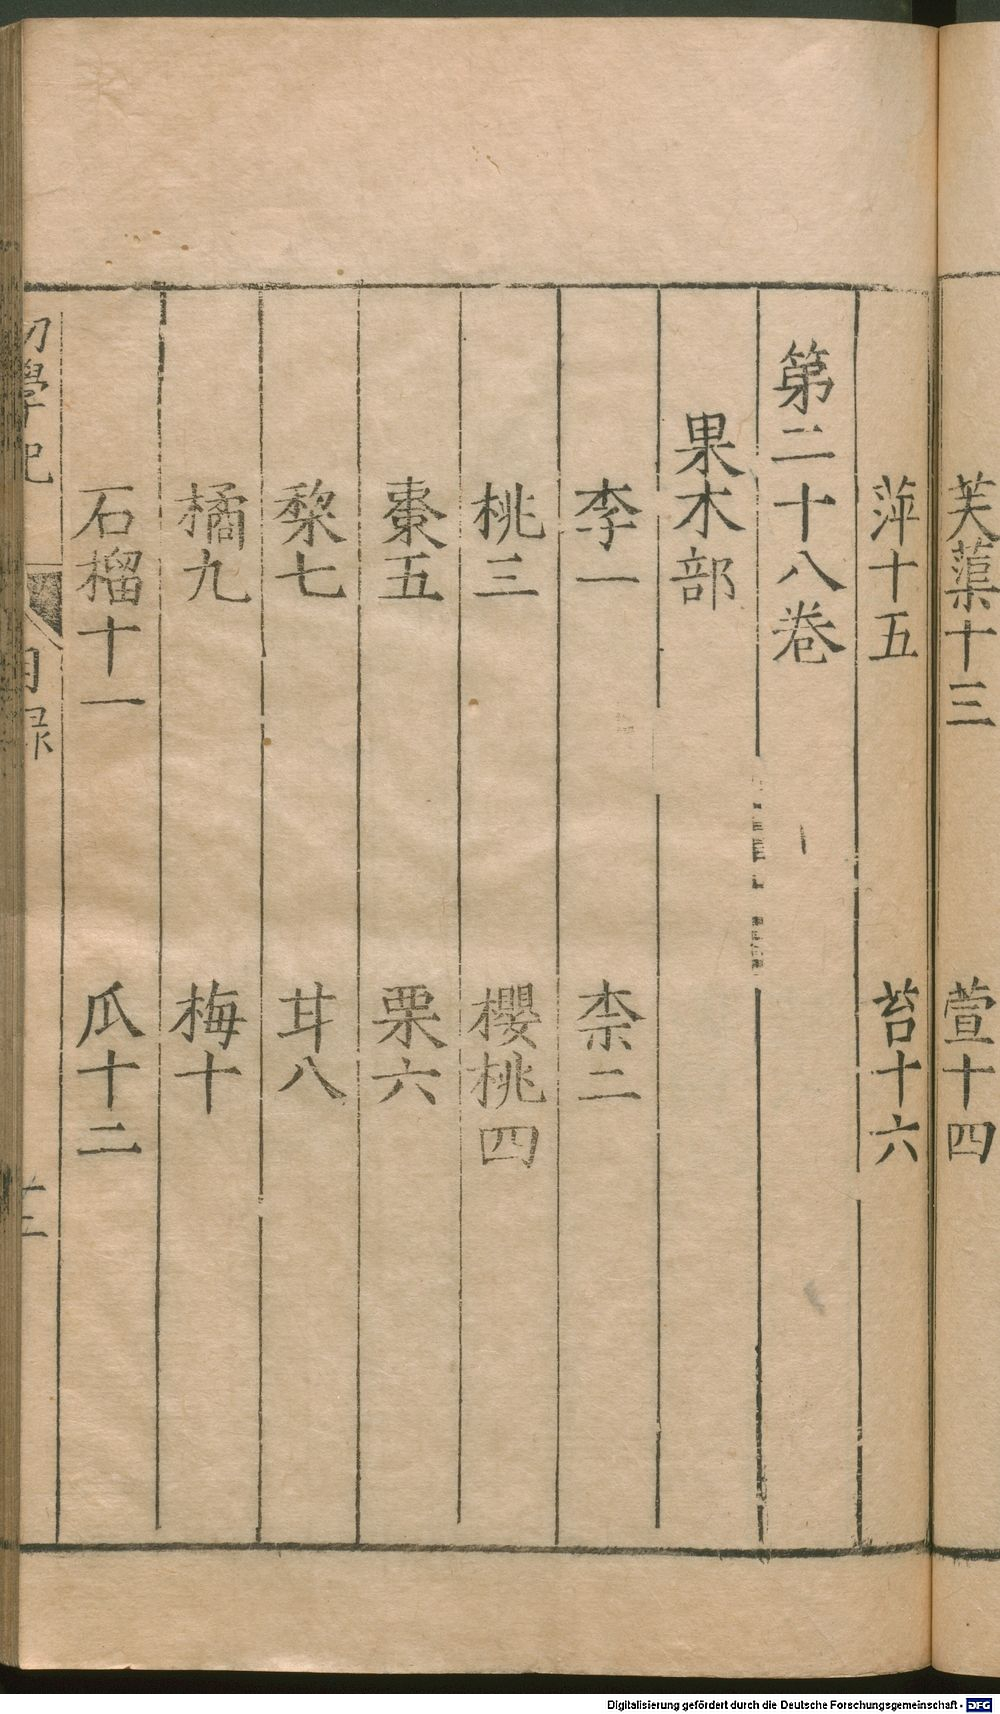 芙蕖十三 萱十四
萍十五 苔十六
第二十八卷
果木部
李一 柰二
桃三 櫻桃四
棗五 栗六
棃七 甘八
橘九 梅十
石榴十一 瓜十二
初學記 目録
Digitalisierung gefördert durch die Deutsche Forschungsgemeinschaft - DFG